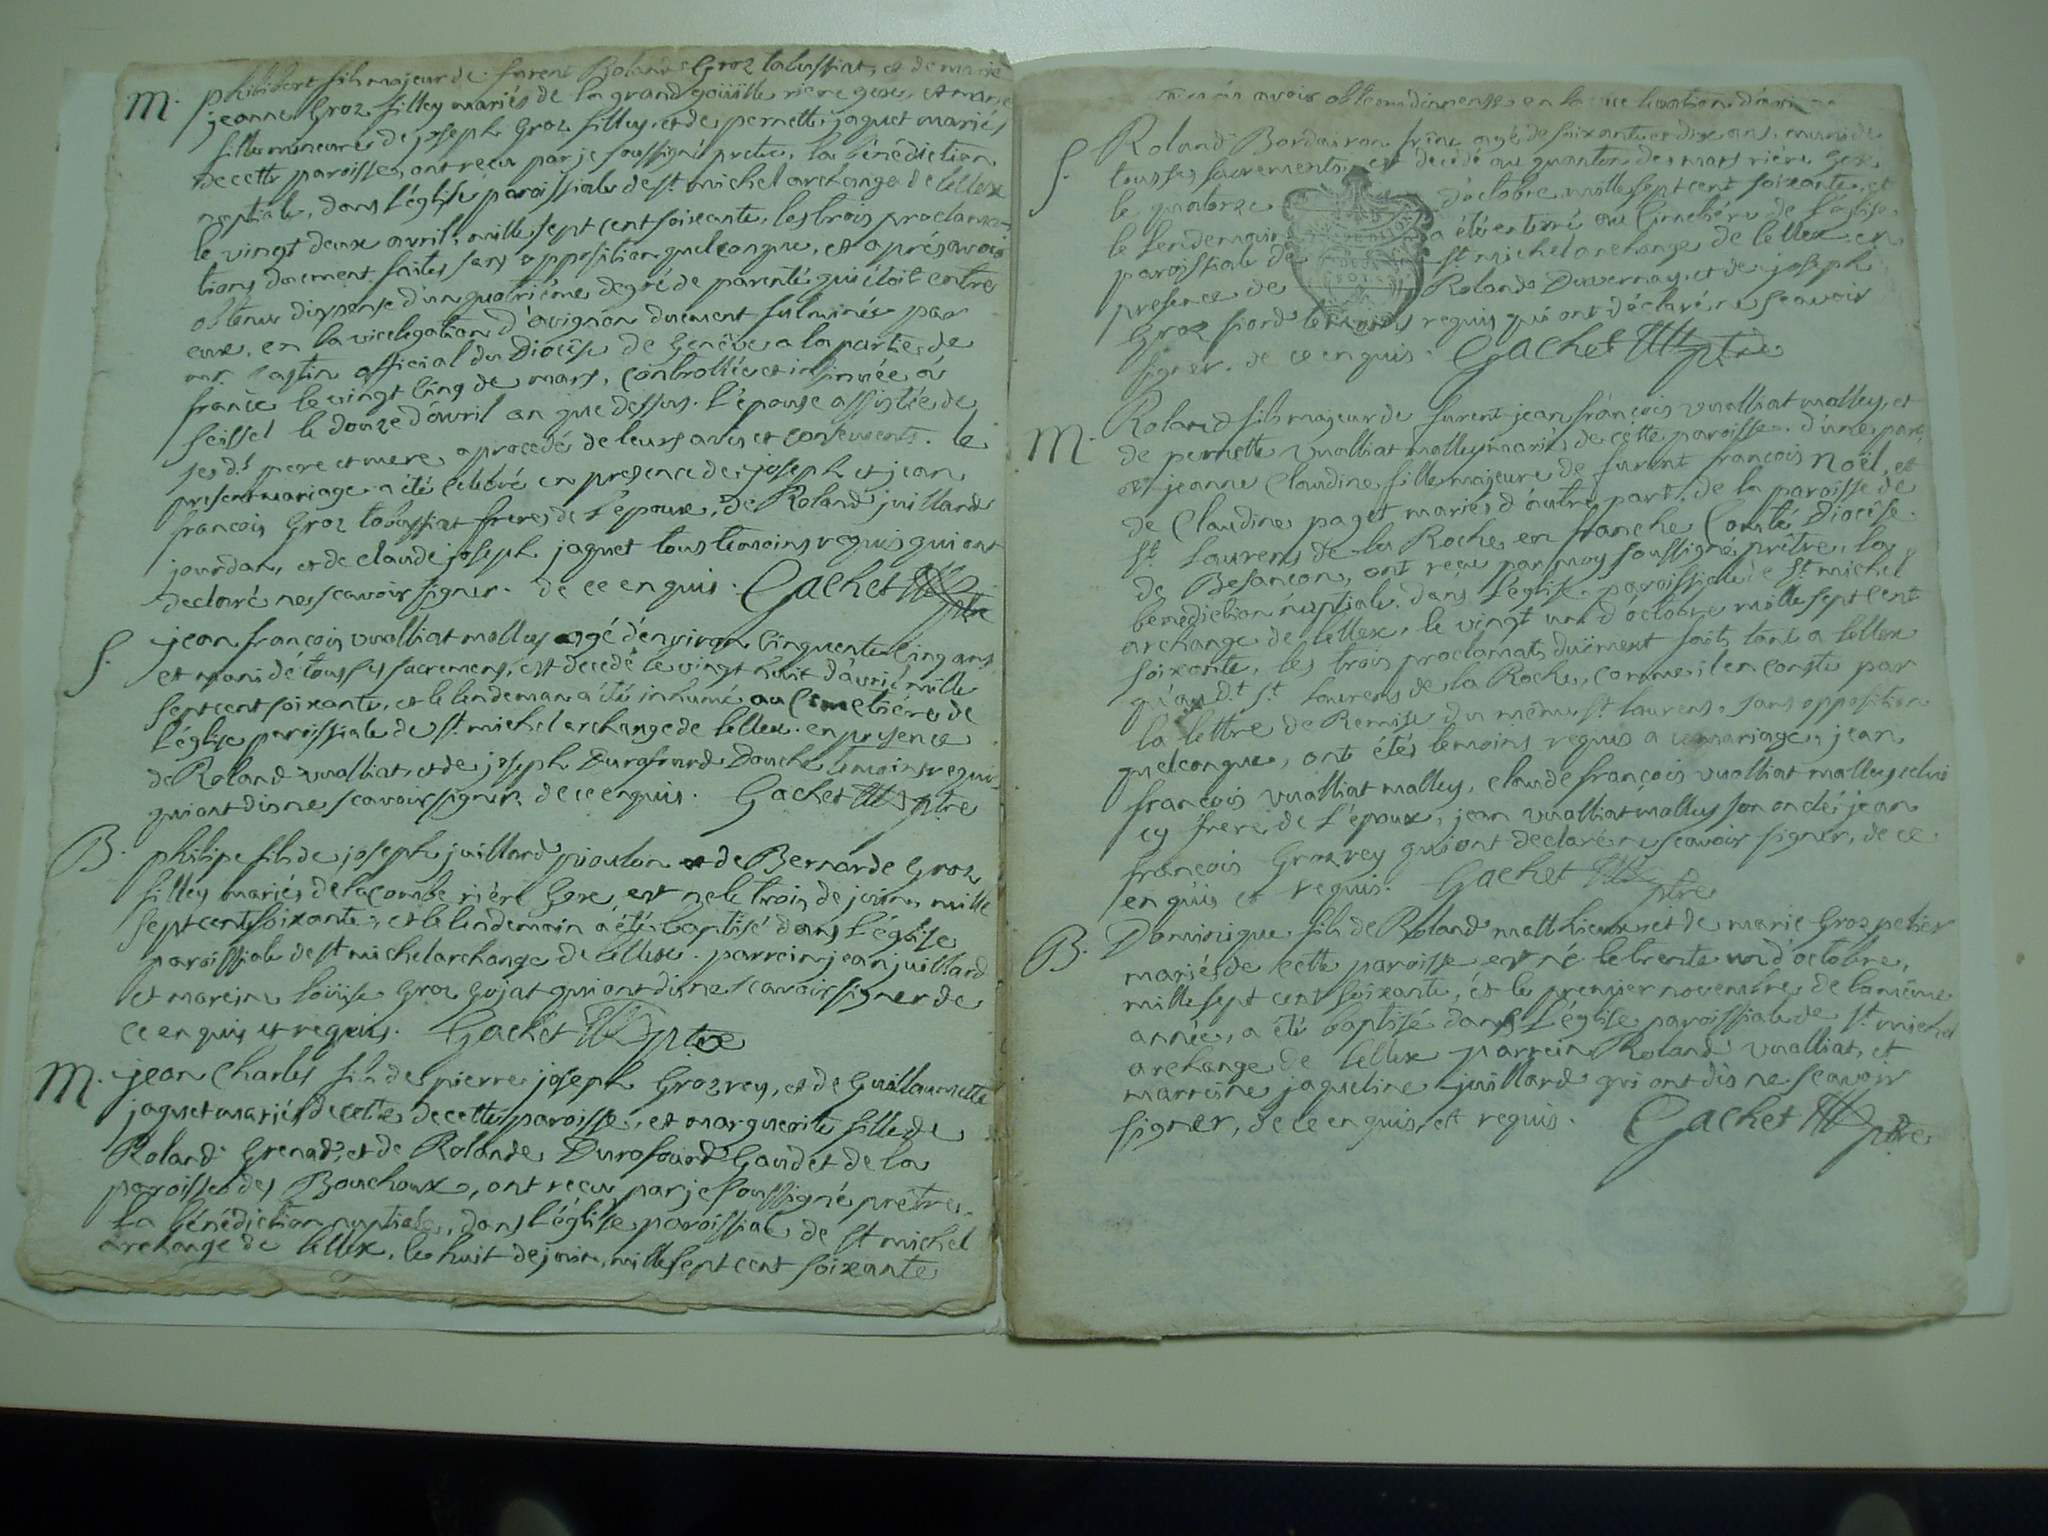 M. philibert fils majeur de furent Roland Groz tabussiat, et de marie
jeanne Groz filley mariés de la grand goüille rière gex, et marie
fille mineure de joseph Groz filley, et de pernette jaquet mariés
de cette paroisse, ont reçu par je soussigné prêtre, la bénédiction
nuptiale, dans l'église paroissiale de st michel archange de lellex
le vingt deux avril, mille sept cent soixante, les trois proclama
tions duement faites sans opposition quelconque, et après avoir
obtenu dispense d'un quatrième degré de parenté qui étoit entre
eux, en la vicelegation d'avignon duement fulminée par
mr castin official du Diocèse de Genève a la partie de
france le vingt cinq de mars, controllée et insinuée à
seissel le douze d'avril an que dessus. l'épouse assistée de
ses ds pere et mere, a procedé de leurs avis et consements. le
present mariage a été celebré en presence de joseph et jean
françois Groz tabussiat freres de l'époux, de Roland juilland
jourdan, et de claude joseph jaquet tous temoins requis qui ont
declaré ne scavoir signer. de ce enquis. Gachet ptre
S. jean françois vualliat malley agé d'environ cinquante cinq ans
et muni de tous ses sacremens, est decedé le vingt huit d'avril mille
sept cent soixante, et le lendeman a été inhumé au Cimetière de
l'église paroissiale de st michel archange de lellex. en presence
de Roland vualliat, et de joseph Durafourd Douche temoins requis
qui ont dis ne scavoir signer de ce enquis. Gachet ptre
B. philipe fils de joseph juillard pioulon et de Bernarde Groz
filley mariés de la combe rière Gex est né le trois de juin mille
sept cent soixante, et le lendemain a été baptisé dans l'église
paroissiale de st michel archange de lellex. parrein jean juillard
et mareine loüise Groz Gojat qui ont dis ne scavoir signer de
ce enquis et requis. Gachet ptre
M. jean Charles fils de pierre joseph Grozrey, et de Guillaumette
jaquet mariés de cette de cette paroisse, et marguerite fille de
Roland Grenad, et de Rolande Durafourd Gaudet de la
paroisse des Bouchoux, ont reçu par je soussigné prêtre,
la bénédiction nuptiale, dans l'église paroissiale de st michel
archange de lellex, le huit de juin, mille sept cent soixante
avoir obtenu dispense en la vice legation d'avi
S. Roland Bordairon agé de soixante et dix ans, muni de
tous ses sacrements, est decedé au quanton des mars rière Gex
le quatorze d'octobre, mille sept cent soixante, et
le lendemain a été enterré au Cimetière de l'église
paroissiale de st michel archange de lellex en
presence de Roland Duvernay, et de joseph
Groz fiord temoins requis qui ont déclaré ne scavoir
signer. de ce enquis. Gachet ptre
M. Roland fils majeur de furent jean françois vualliat malley, et
de pernette vualliat malley mariés de cette paroisse. d'une part,
et jeanne Claudine fille majeure de furent françois Noël, et
de Claudine paget mariés d'autre part. de la paroisse de
st. Laurens de la Roche en franche Comté Diocèse
de Besançon, ont reçu par moy soussigné prêtre, la
benediction nuptiale. dans l'église paroissiale de st michel
archange de lellex, le vingt un d'octobre mille sept cent
soixante, les trois proclamats düement faits tant a lellex
qu'au dt st. Laurens de la Roche, comme il en conste par
la lettre de Remise du même st laurens, sans opposition
quelconque, ont étés temoins requis a ce mariage, jean
françois vualliat malley, claude françois vualliat malley celui
cy frere de l'époux, jean vualliat malley son oncle, jean
françois Grozrey qui ont declaré ne scavoir signer, de ce
enquis et requis. Gachet ptre
B. Dominique fils de Roland matthieu et de marie Groz pelier
mariés de cette paroisse est né le trente un d'octobre,
mille sept cent soixante, et le premier novembre de la même
année, a été baptisé dans l'église paroissiale de st. michel
archange de lellex parrein Roland vualliat, et
marreine jaqueline juillard qui ont dis ne scavoir
signer, de ce enquis, et requis. Gachet ptre